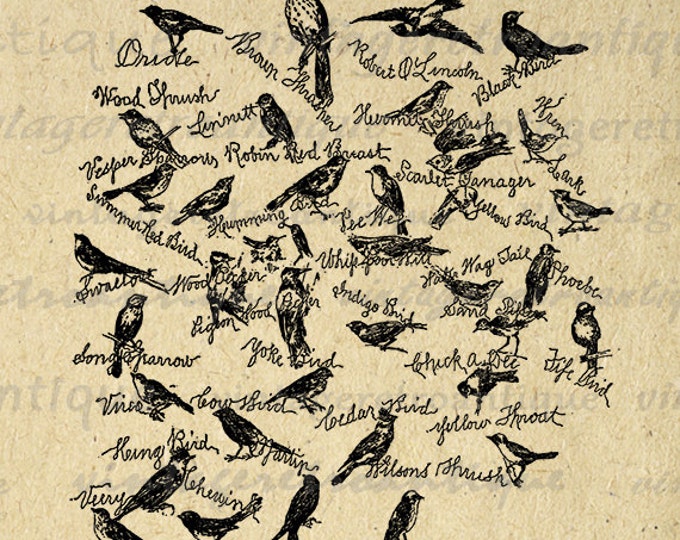 Oriole
Brown Thrasher
Robert O'Lincoln
Black Bird
Wood Thrush
Linnett
Hermit Thrush
Wren
Vesper Sparrows
Robin Red Breast
Scarlet Tanager
Lark
Summer Red Bird
Humming Bird
Pee Wee
Yellow Bird
Swallow
Wood Pecker
Whip Poor Will
Water Wag Tail
Phoebe
Pigeon Wood Pecker
Indigo Bird
Sand Piper
Song Sparrow
Yoke Bird
Chick a Dee
Fife Bird
Vireo
Cow Bird
Cedar Bird
Yellow Throat
King Bird
Martin
Wilsons Thrush
Veery
Chewink